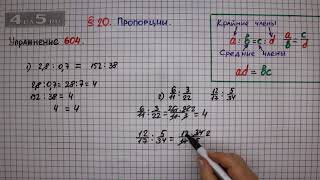 § 20. Пропорции.
Упражнение 604.
Крайние члены
a : b = c : d
a/b = c/d
Средние члены
ad = bc
1) 2,8 : 0,7 = 152 : 38
2,8 : 0,7 = 28 : 7 = 4
152 : 38 = 4
4 = 4
2) 6/11 : 3/22 и 12/17 : 5/34
6/11 : 3/22 =
= 4
12/17 : 5/34 =